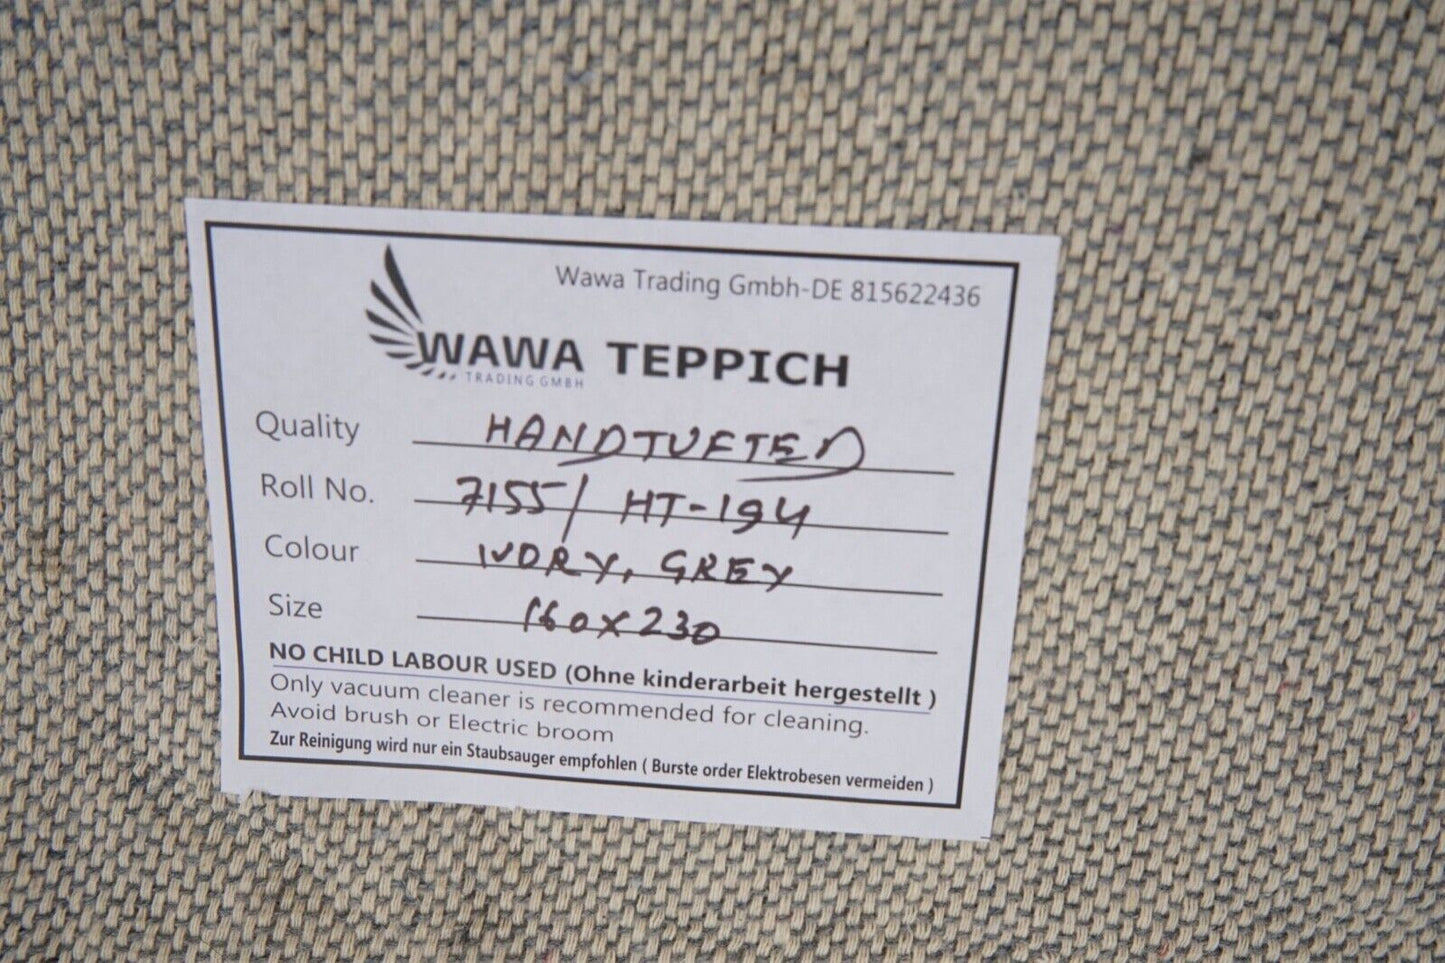 Wawa Trading Gmbh-DE 815622436
WAWA TEPPICH
TRADING GMBH
Quality HANDTUFTED
Roll No. 7155/ HT-194
Colour IVORY, GREY
Size 160x230
NO CHILD LABOUR USED (Ohne kinderarbeit hergestellt )
Only vacuum cleaner is recommended for cleaning.
Avoid brush or Electric broom
Zur Reinigung wird nur ein Staubsauger empfohlen ( Burste order Elektrobesen vermeiden )